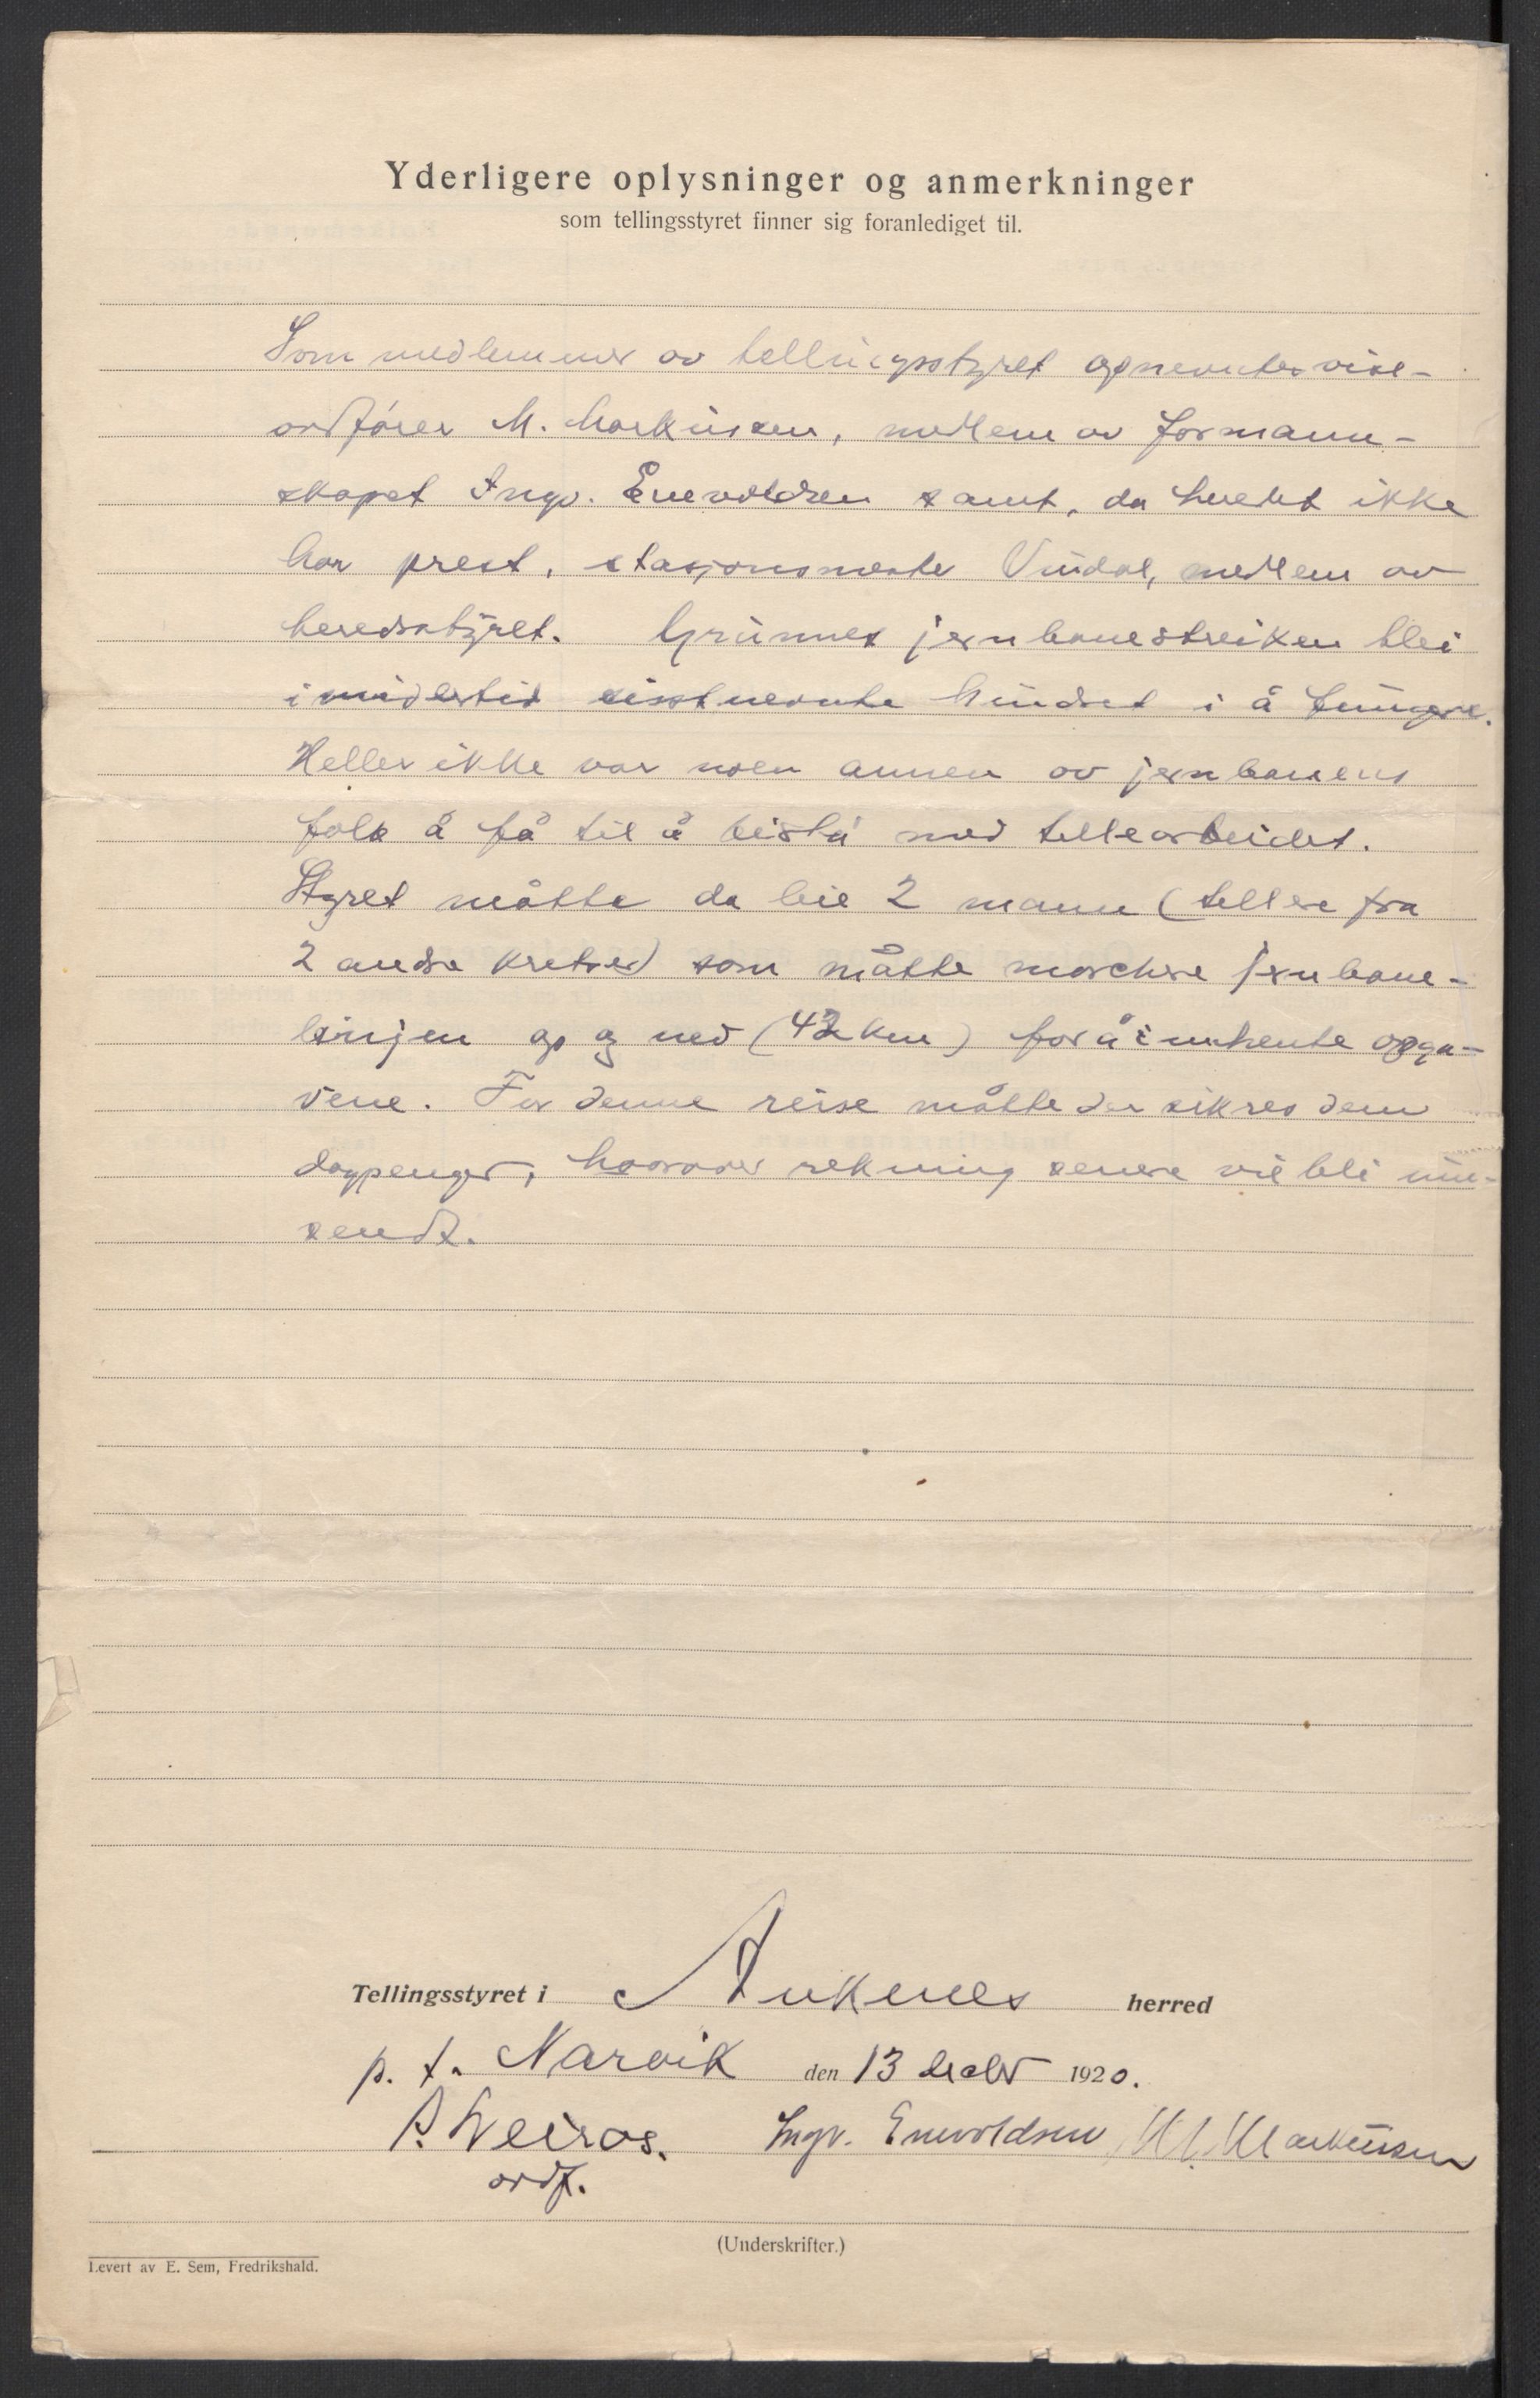 Yderligere oplysninger og anmerkninger
som tellingsstyret finner sig foranlediget til.
Som medlemmer av tellingsstyret opnevntes vise-
ordfører M. Markussen, medlem av formann-
skapet Ingv. Enevoldsen samt, da heredet ikke
har prest, stasjonsmester Vindal, medlem av
heredsstyret. Grunnet jernbanestreiken blei
imidlertid sisstnevnte hindret i å fungere.
Heller ikke var noen annen av jernbanens
folk å få til å bistå med tellearbeidet.
Styret måtte da leie 2 mann (tellere fra
2 andre kretser) som måtte marchere jernbane-
linjen op og ned (42 km) for å innhente opga-
vene. For denne reise måtte der sikres dem
dagpenger, hvorover rekning senere vil bli inn-
sendt.
Tellingsstyret i Ankenes herred
p. t. Narvik den 13 decbr 1920.
Ingv. Enevoldsen M. Markussen
ordf.
(Underskrifter.)
Levert av E. Sem, Fredrikshald.